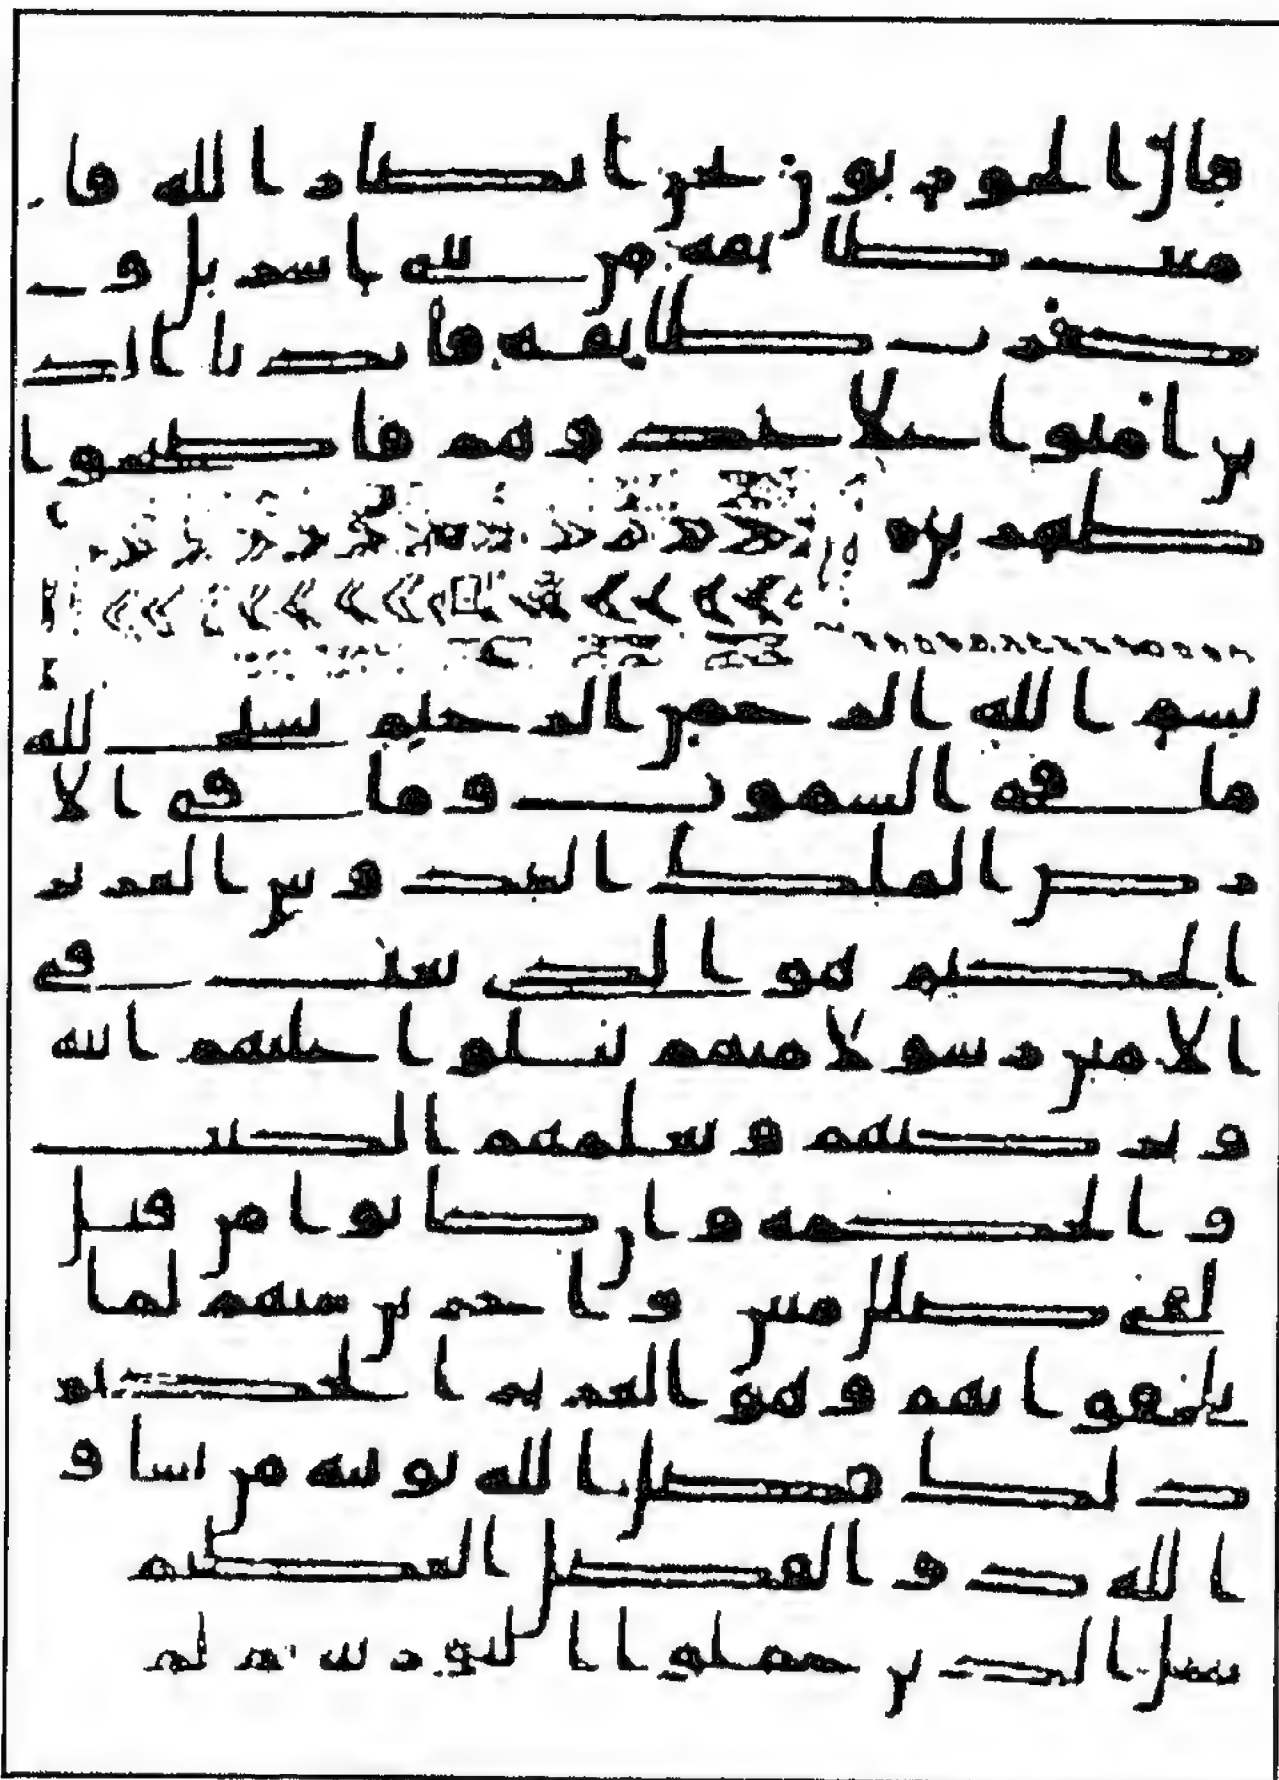 قال الحواريون نحن انصار الله فا
منت طائفة من بني اسرائيل و
كفرت طائفة فايدنا الذ
ين امنوا على عدوهم فاصبحوا
ظهرين
بسم الله الرحمن الرحيم يسبح لله
ما في السموت وما في الا
رض الملك القدوس العزيز
الحكيم هو الذي بعث في
الامين رسولا منهم يتلوا عليهم ايته
ويزكيهم ويعلمهم الكتب
والحكمة وان كانوا من قبل
لفي ضلل مبين واخرين منهم لما
يلحقوا بهم وهو العزيز الحكيم
ذلك فضل الله يوتيه من يشا و
الله ذو الفضل العظيم
مثل الذين حملوا التورية ثم لم